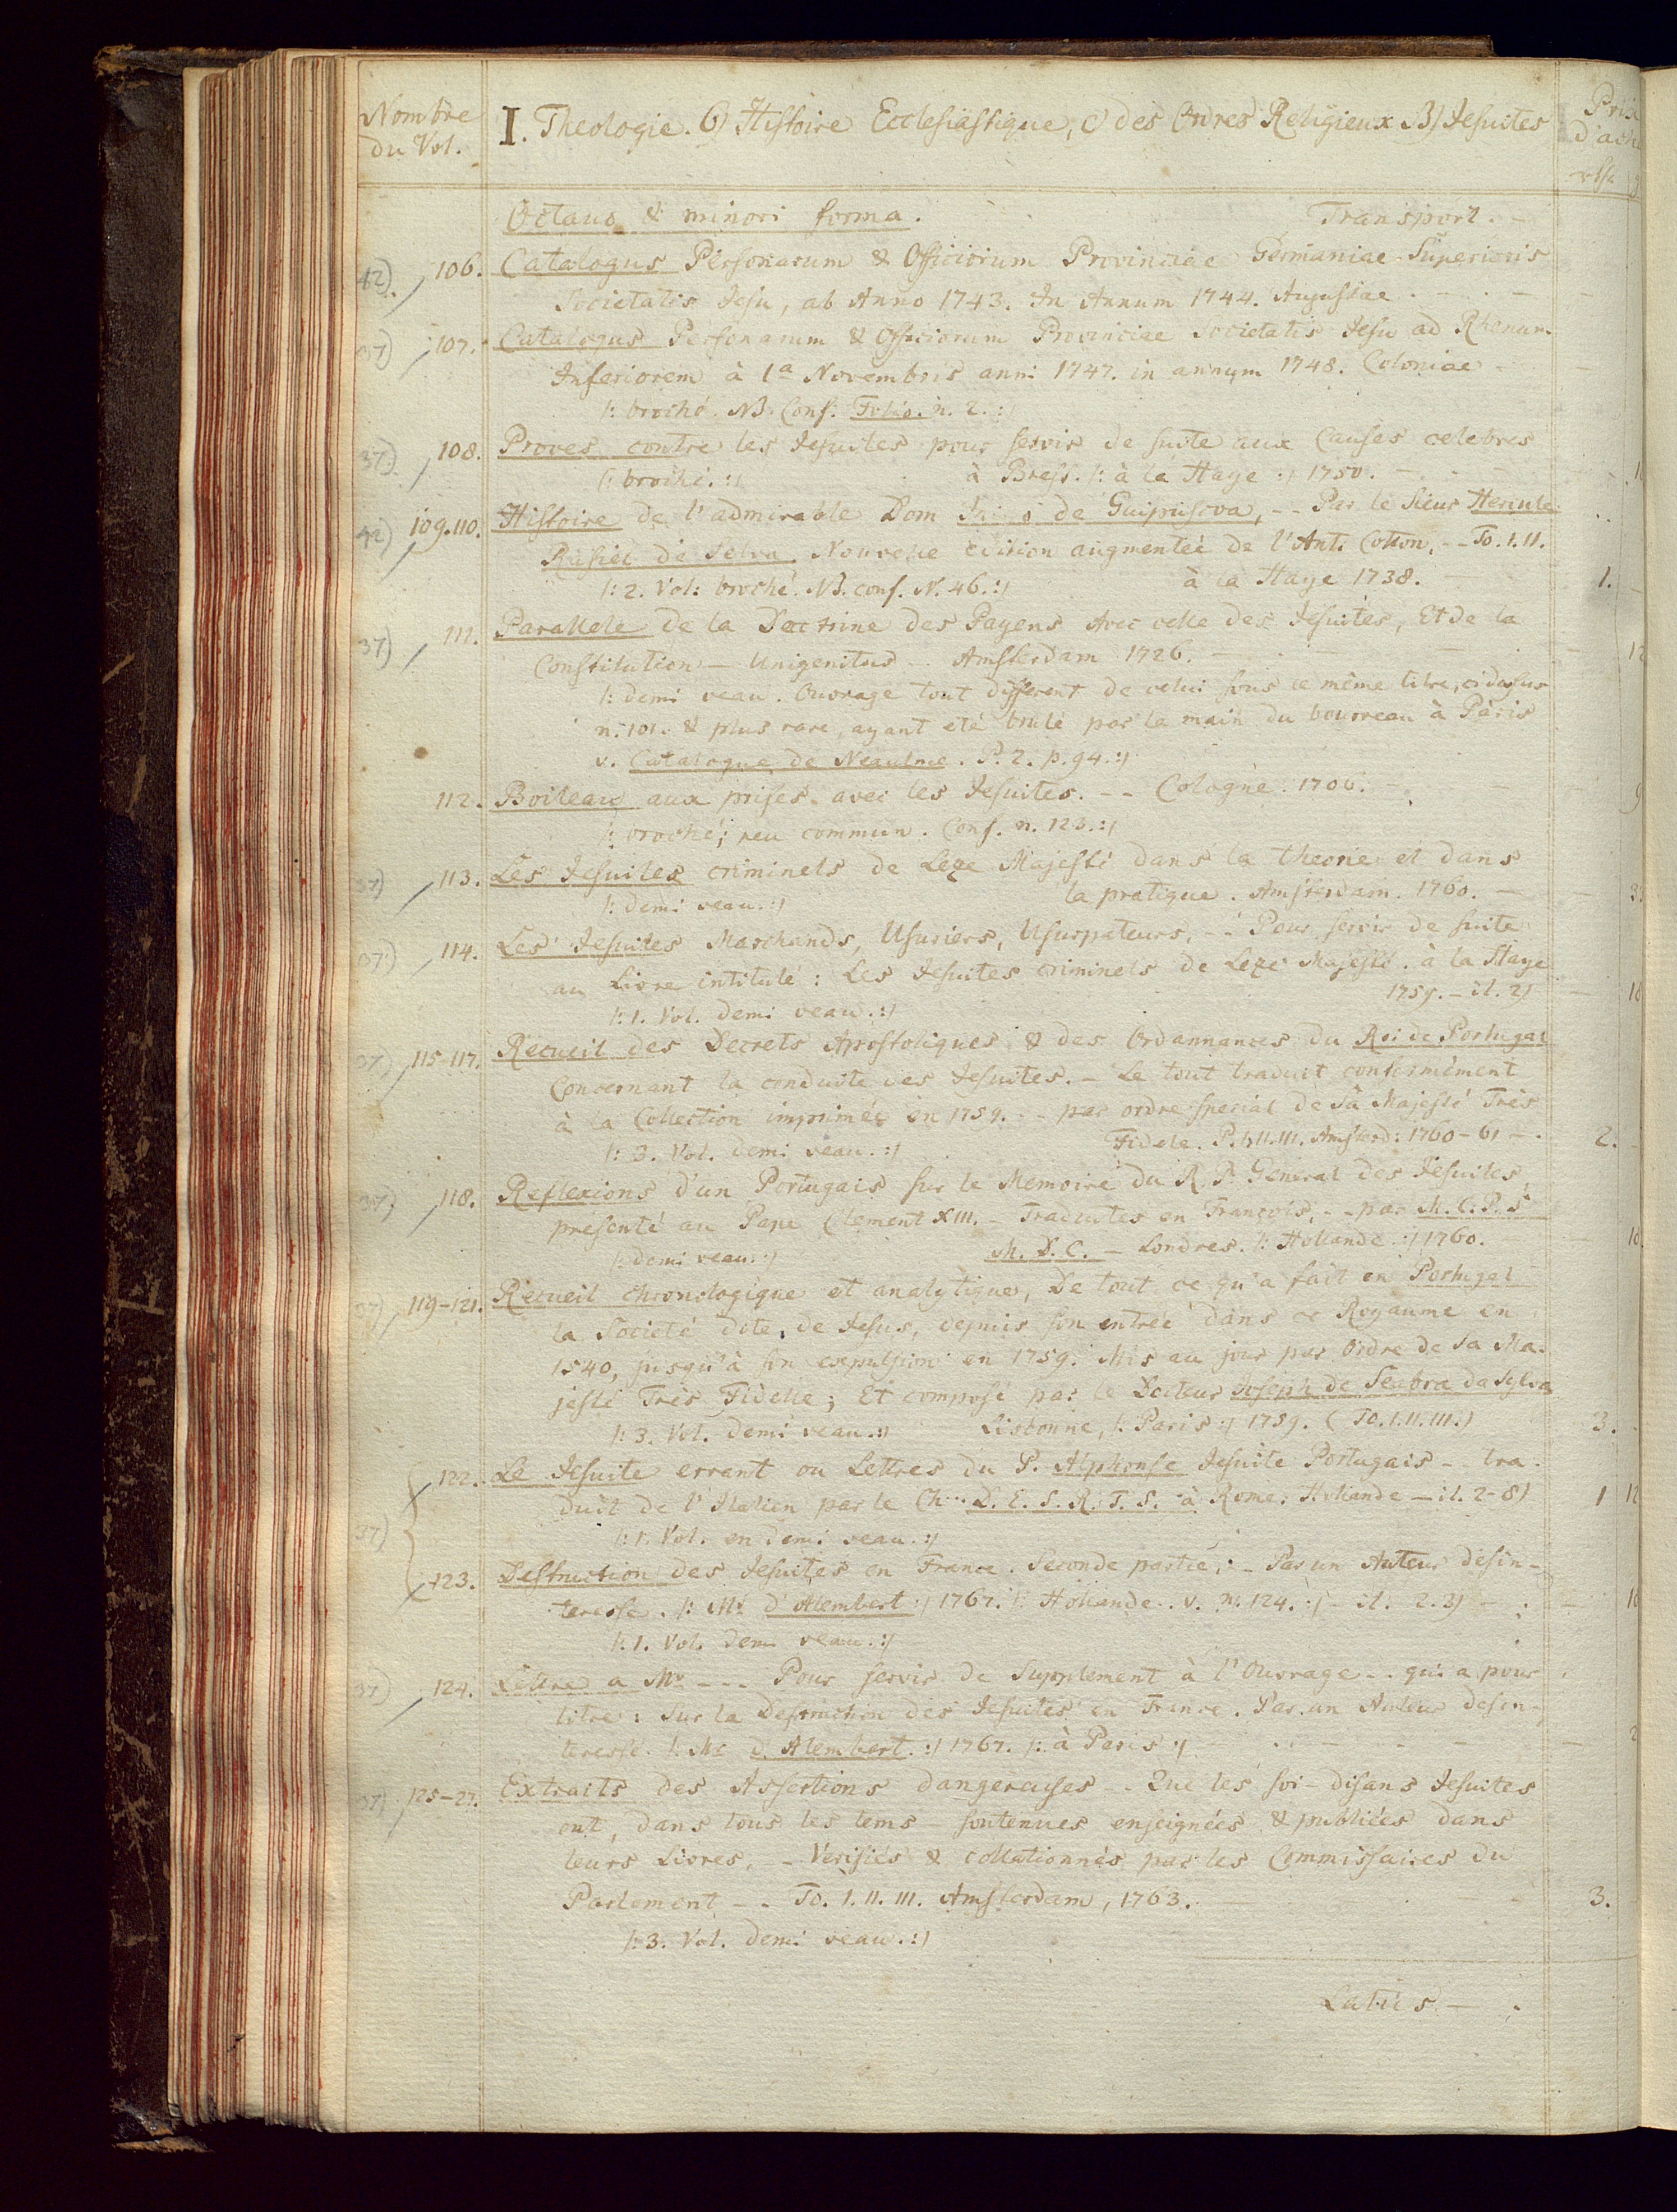 Nombre
du Vol.
I. Theologie. 6) Histoire Ecclesiastique, c) des Ordres Religieux B) Jesuites
Prix
d'ach
rthl
Octavo & minori forma. Transport. -
42). 106. Catalogus Personarum & Officiorum Provinciae Germaniae Superioris
Societatis Jesu, ab Anno 1743. In Annum 1744. Augustae . -
37) 107. Catalogus Personarum & Officiorum Provinciae Societatis Jesu ad Rhenum
Inferiorem à 1a Novembris anni 1747. in annum 1748. Coloniae -
/: broché. NB. Conf. Folio. n. 2. :/
37). 108. Proves contre les Jesuites pour servir de suite aux Causes celebres
/: broché. :/ à Brest. /: à la Haye :/ 1750. -
42) 109.110. Histoire de l'admirable Dom Inigo de Guipuscova, -- Par le Sieur Hercule
Rasiel de Selva. Nouvelle edition augmentée de l'Anti Cotton, -- To. I. II.
/: 2. Vol: broché. NB. conf. N. 46. :/ à la Haye 1738. - 1.
37) 111. Parallele de la Doctrine des Payens Avec celle des Jesuites, Et de la
Constitution - Unigenitus - Amsterdam 1726. - 12
/: demi veau. Ouvrage tout different de celui sous ce même titre, ci dessus
n. 101. & plus rare, ayant eté brulé par la main du bourreau à Paris
v. Catalogue de Neaulme. P. 2. p. 94. :/
112. Boileau aux prises avec les Jesuites. -- Cologne. 1706. - 9
/: broché; peu commun. Conf. n. 123. :/
37) 113. Les Jesuites criminels de Leze Majesté dans la theorie et dans
/: demi veau. :/ la pratique. Amsterdam. 1760. -
37) 114. Les Jesuites Marchands, Usuriers, Usurpateurs, -- Pour servir de suite
au Livre intitulé: Les Jesuites criminels de Leze Majesté. à la Haye
1759. - il. 2)
/: 1. Vol. demi veau. :/
37) 115-117. Recueil des Decrets Apostoliques & des Ordannances du Roi de Portugal
Concernant la conduite des Jesuites. - Le tout traduit conformément
à la Collection imprimée en 1759. -- par ordre special de Sa Majesté Très
/: 3. Vol. demi veau. :/ Fidele. P. I. II. III. Amsterd: 1760-61 - 2.
37) 118. Reflexions d'un Portugais sur le Memoire du R. P. General des Jesuites,
présenté au Pape Clement XIII. - Traduites en François, -- par M. C. P. S
/: demi veau. :/ M. D. C. - Londres. /: Hollande :/ 1760.
37) 119-121. Recueil chronologique et analytique, De tout ce qu'a fait en Portugal
la Societé dite, de Jesus, depuis son entrée dans ce Royaume en
1540, jusqu'à son expulsion en 1759. Mis au jour par Ordre de Sa Ma-
jesté Très Fidelle; Et composé par le Docteur Joseph de Seabra da Sylva
/: 3. Vol. demi veau. :/ Lisbonne, /: Paris :/ 1759. (To. I. II. III.) 3.
122. Le Jesuite errant ou Lettres du P. Alphonse Jesuite Portugais - tra-
duit de l'Italien par le Ch... D. E. S. R. T. S. à Rome: Hollande - il. 2-8) 1 12
37) /: 1. Vol. en demi veau. :/
123. Destruction des Jesuites en France. Seconde partie, - Par un Auteur desin-
teresse. /: Mr. d'Alembert :/ 1767. /: Hollande. v. n. 124. :/ - il. 2. 3) -
/: 1. Vol. demi veau. :/
37) 124. Lettre a Mr --- Pour servir de Supplement à l'Ouvrage -- qui a pour
titre: Sur la Destruction des Jesuites en France. Par un Auteur desin-
teressé. /: Mr d'Alembert. :/ 1767. /: à Paris :/
37) 125-27. Extraits des Assertions dangereuses -- Que les soi-disans Jesuites
ont, dans tous les tems - soutenues enseignées & publiées dans
leurs Livres, -- Verifiés & collationnés par les Commissaires du
Parlement -- To. I. II. III. Amsterdam, 1763. 3.
/: 3. Vol. demi veau. :/
Latus -